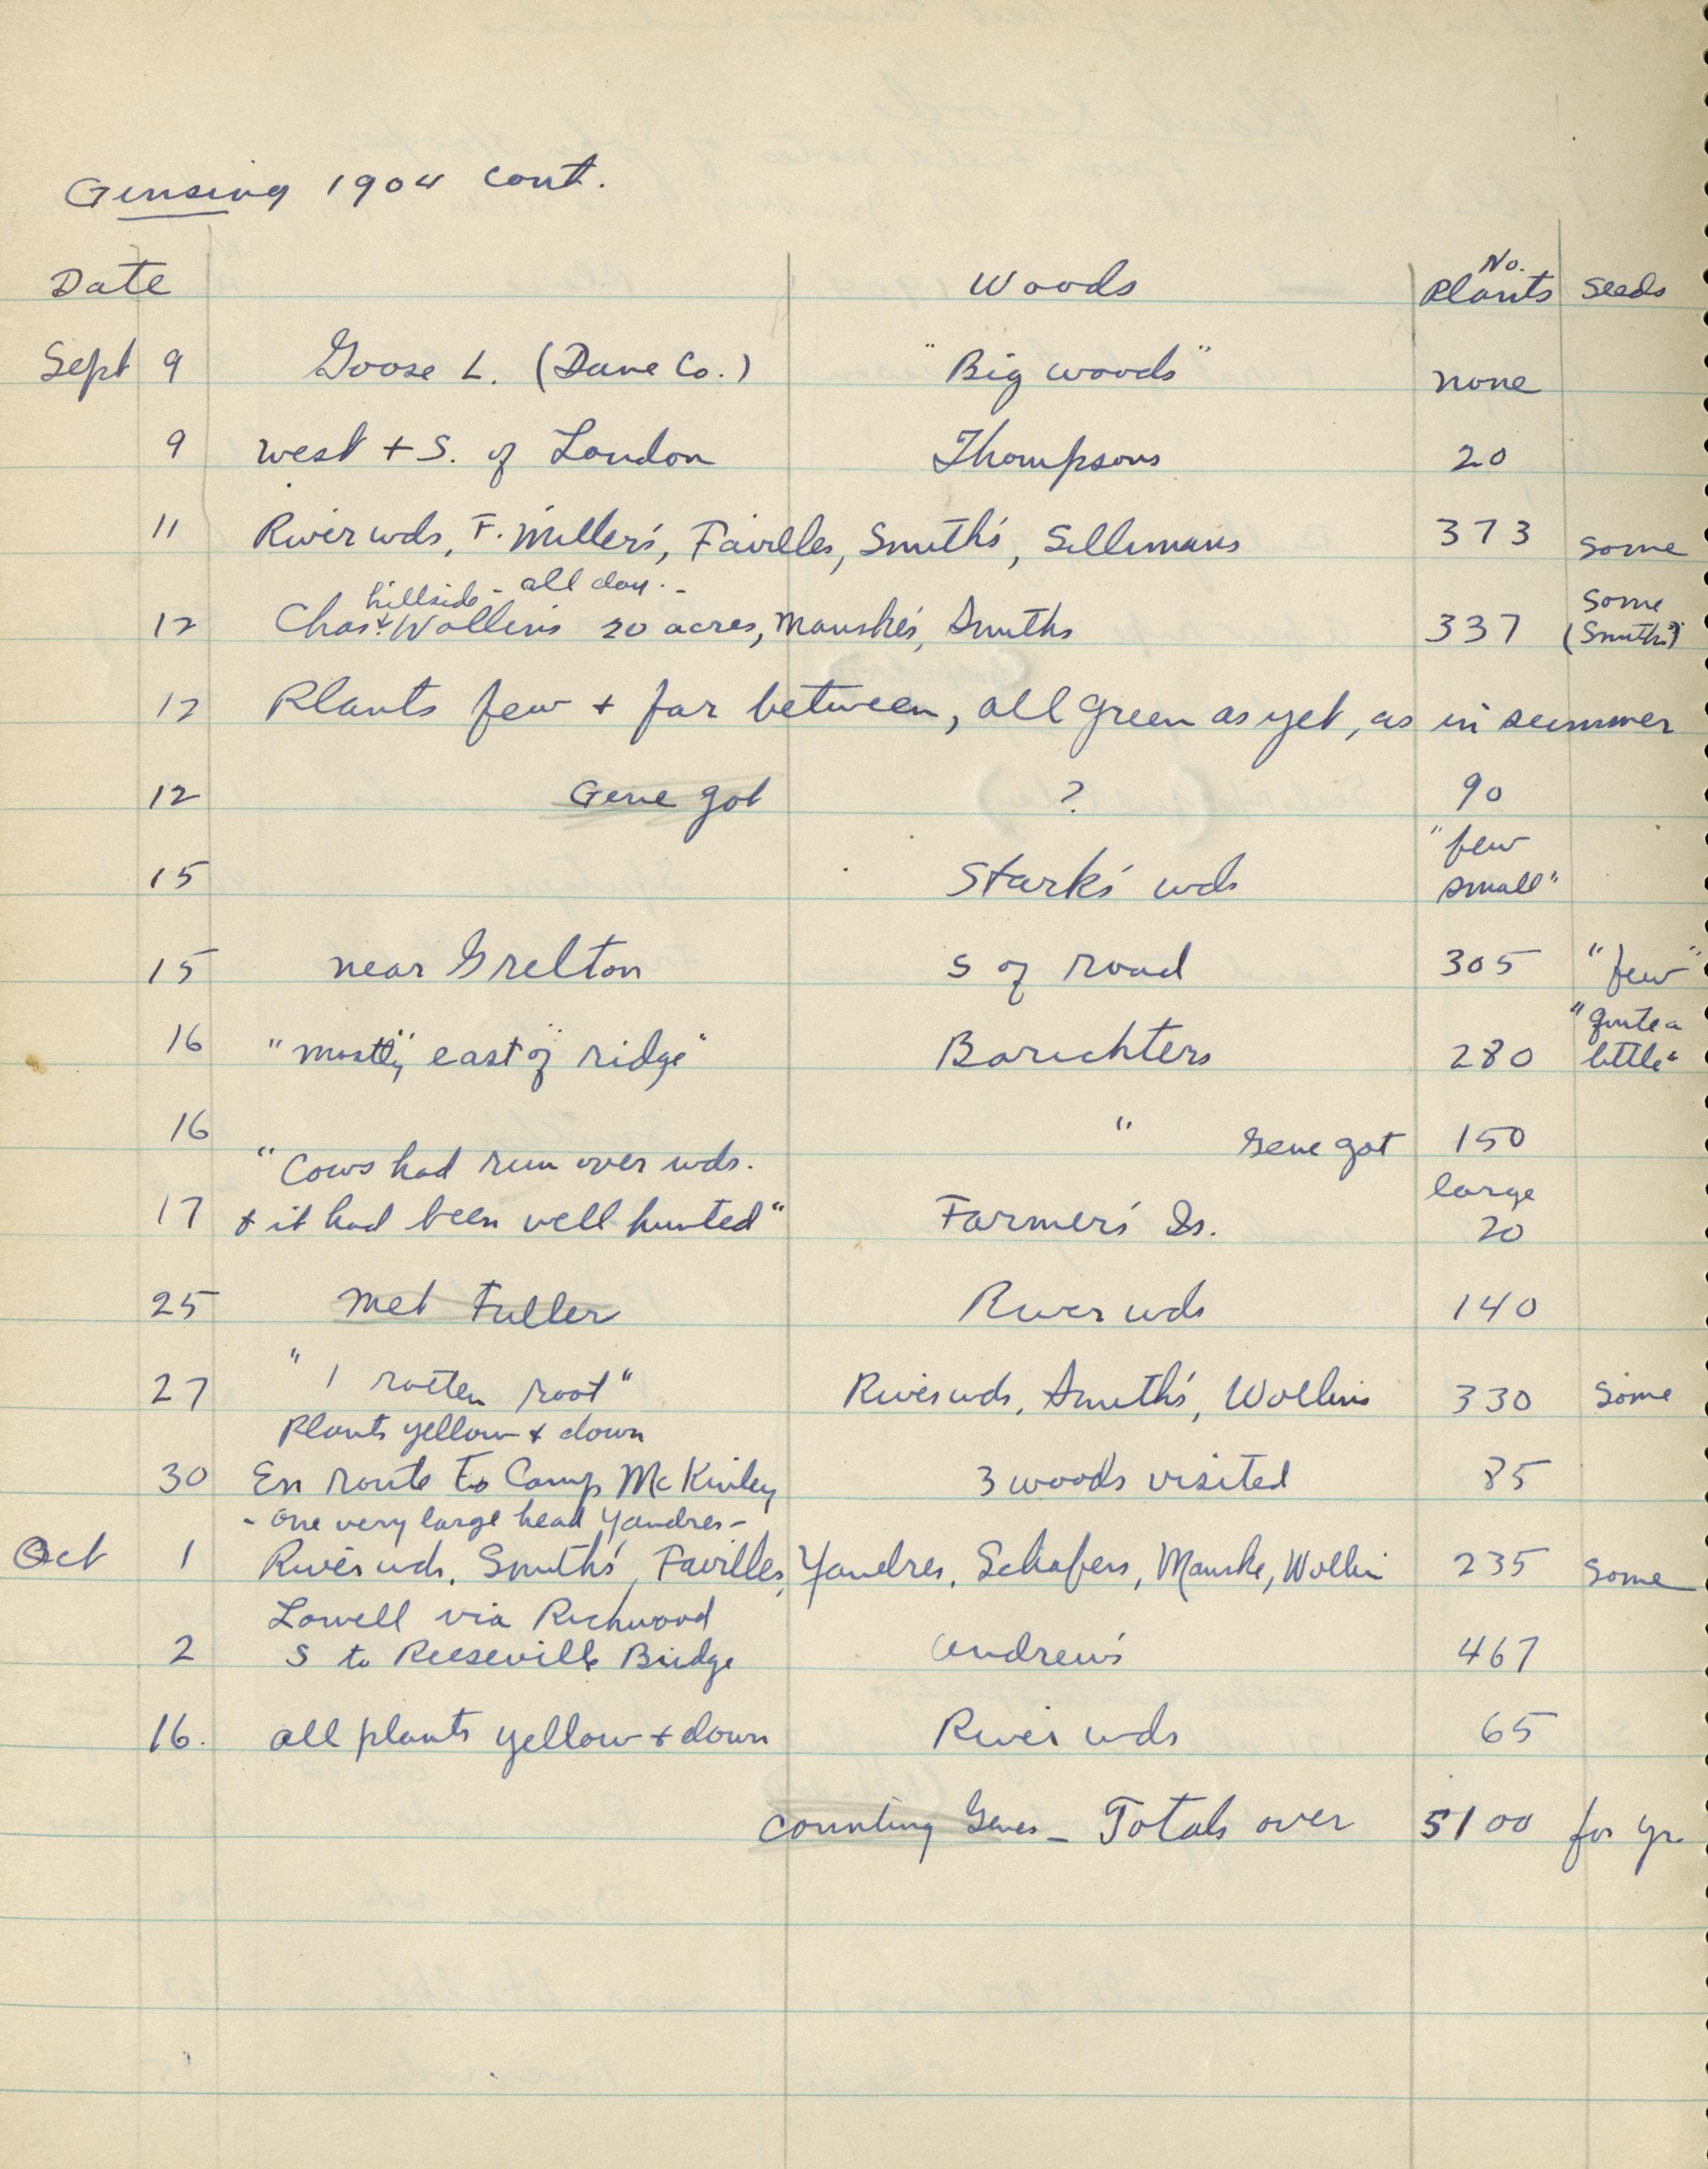 Ginseng 1904 cont.
Date Woods No. Plants Seeds
Sept 9 Goose L. (Dane Co.) "Big woods" none
9 west + S. of London Thompsons 20
11 River wds, F. Miller's, Favilles, Smith's, Sillimans 373 some
hillside - all day. - some
12 Chas. + Wollins 20 acres, Manske's, Smiths 337 (Smith's)
12 Plants few + far between, all green as yet, as in summer
12 Gene got ? 90
"few
15 Stark's wds small"
15 near Grelton S of road 305 "few"
"quite a
16 "mostly east of ridge" Barichters 280 little"
16 " Gene got 150
"Cows had run over wds. large
17 + it had been well hunted" Farmer's Is. 20
25 Met Fuller River wds 140
27 "1 rotten root" River wds, Smith's, Wollins 330 Some
Plants yellow + down
30 En route to Camp McKinley 3 woods visited 85
- one very large head Yandres -
Oct 1 River wds, Smith's, Favilles, Yandres, Schafers, Manske, Wollin 235 some
Lowell via Richwood
2 S to Reeseville Bridge Andrew's 467
16. all plants yellow + down River wds 65
counting Genes - Totals over 5100 for yr.